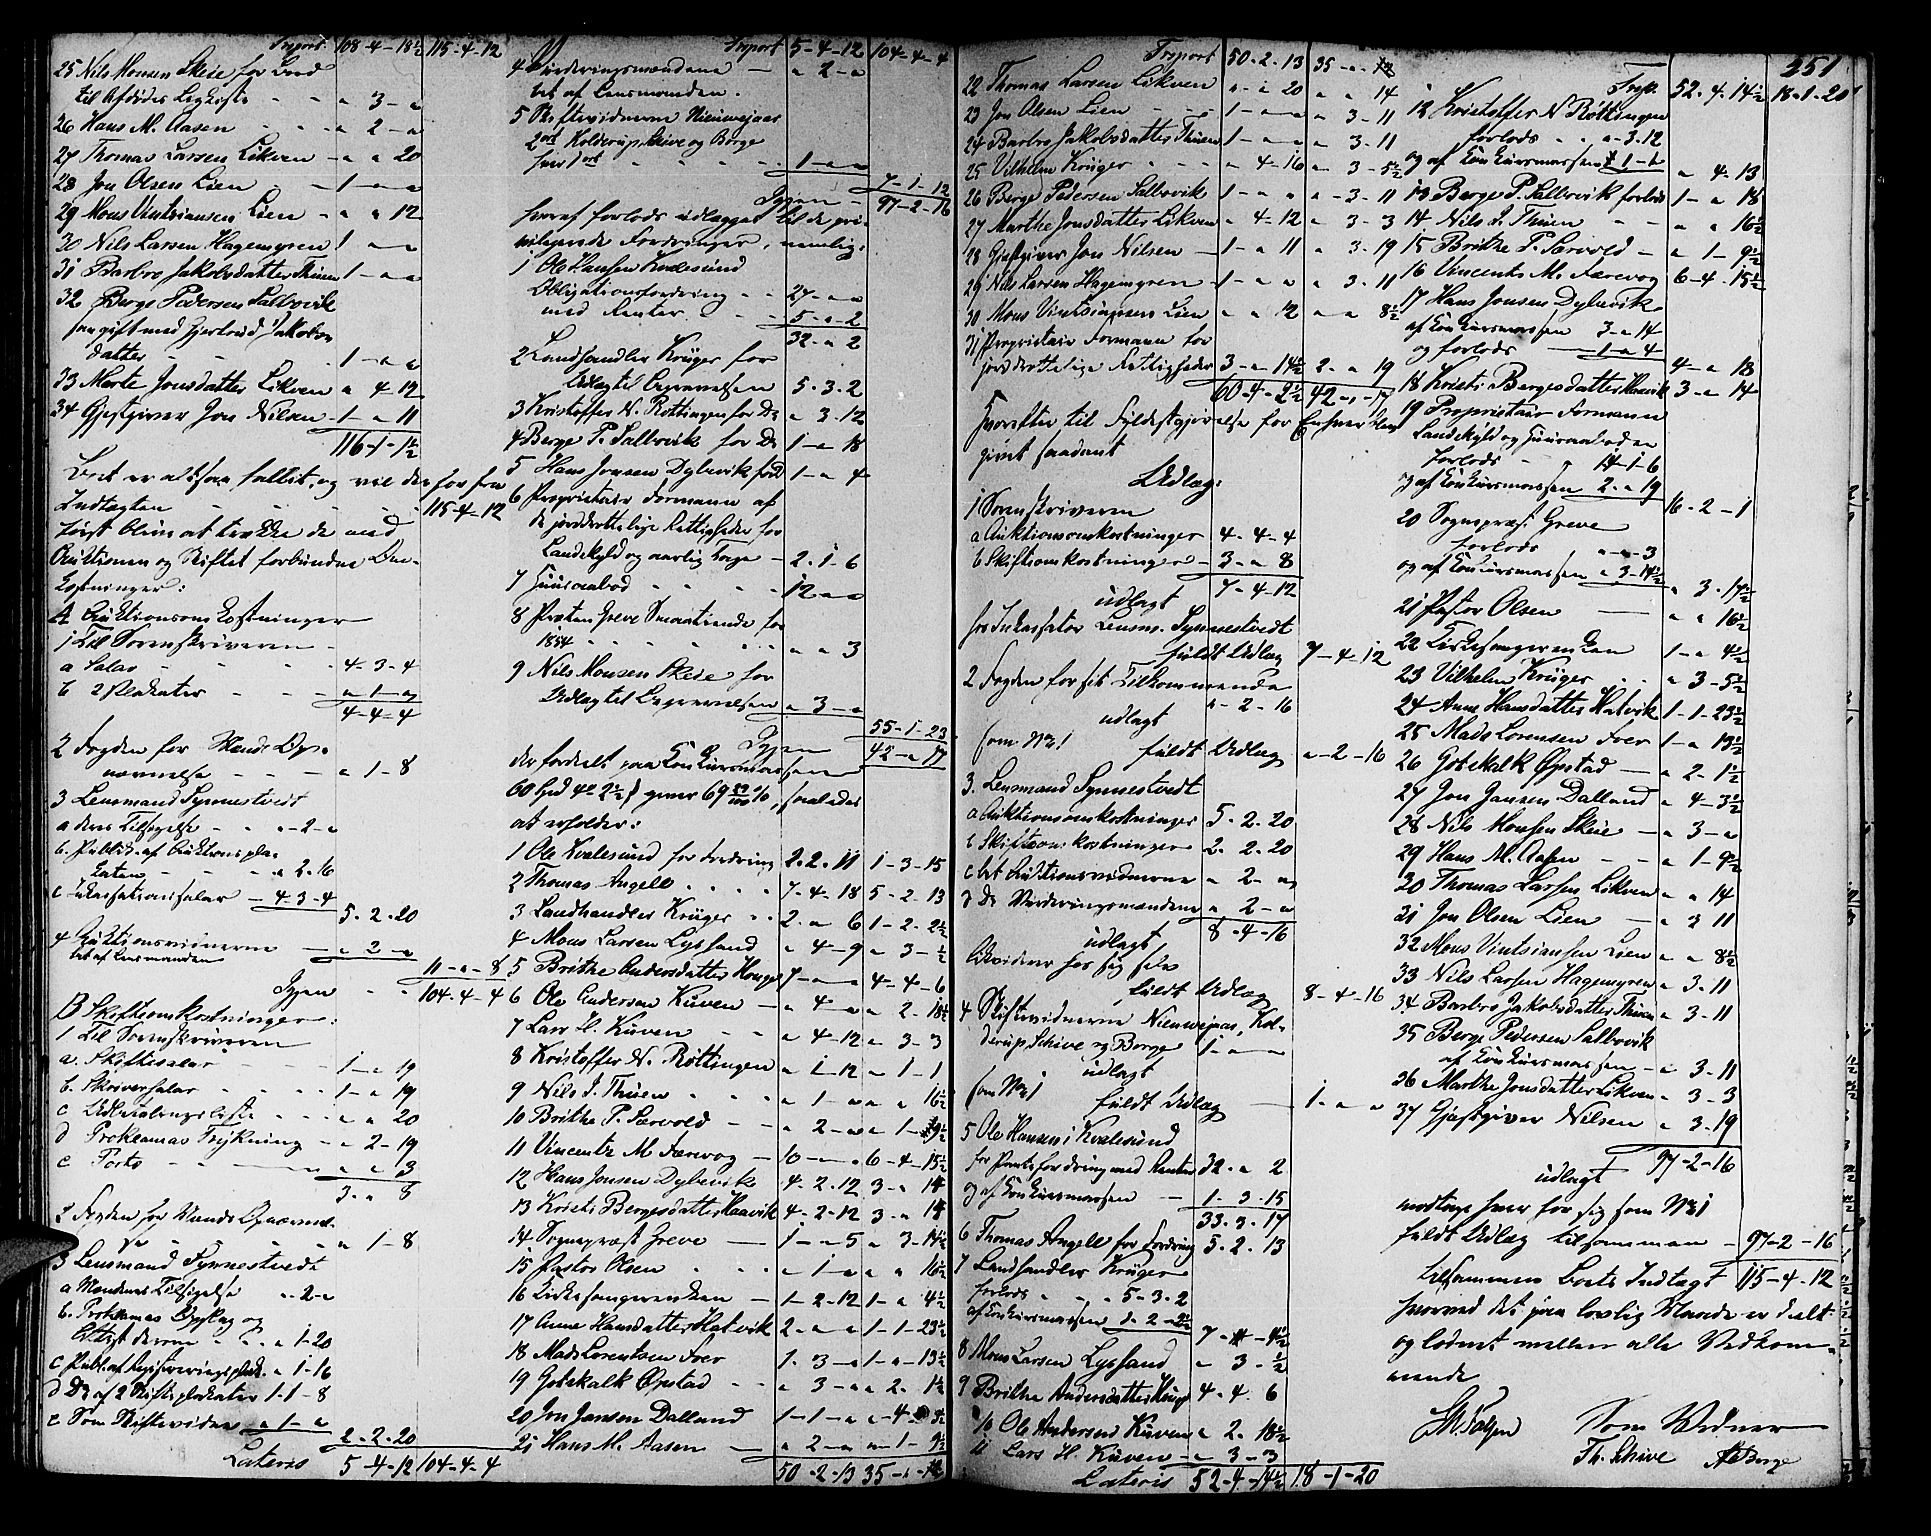 Trsport 108-4-18½ 115-4-12
25 Nils Monsen Skeie for Bord
til Afdødes Ligkiste - - " 3 - "
26 Hans M. Aasen - - " 2 - "
27 Thomas Larsen Likven - " " 20
28 Jon Olsen Lien - 1 - " - "
29 Mons Vintsiansen Lien - " " 12
30 Nils Larsen Hagemyren 1 " - "
31 Barbro Jakobsdatter Thuen 1 - " "
32 Berge Pedersen Salbovik
angift med Gjertrud Jakobs
datter - - 1 - " "
33 Marte Jonsdatter Likven " 4-12
34 Gjestgiver Jon Nilsen - 1 - " 11
116-1-1½
Boet er altsaa fallit, og vil derfor fra
Indtægten - - - 115-4-12
først blive at trække de med
Auktionen og Skiftet forbundne Om-
kostninger:
A Auktionsomkostninger
1 Til Sorenskriveren -
a Salar - - 4-3-4
b 2 Plakater - - " 1 - "
4-4-4
2 Fogden for Mænds Op-
nævnelse - - " 1-8
3 Lensmand Synnestvedt
a deres Tilsigelse - - " 2 - "
b. Public. af Auktionspla-
katen - - " 2.16
c Inkassationssalar - 4-3-4
5.2.20
4 Auktionsvidnerne - " 2 - "
bet af Lensmanden
11 - " - 8
Igjen - - 104-4-4
B Skifteomkostninger:
1 Til Sorenskriveren
a. Skiftesalar - 1 - " 19
b. Skriversalar - 1 - " 19
c Udlodningsliste - - " " 20
d Proklamas Trykning - " 2-19
e Porto - - " " 3
3 " 8
2 Fogden for Mænds Opnævnel-
se - - " 1-8
3 Lensmand Synnestvedt
a Mændenes Tilsigelse " 2 - "
b. Proklamas Opslag og
Attest derom - " 1-20
c Publ. af Registreringsplak. " 1-16
d Do af 2 Skifteplakater 1-1-8
e Som Skiftevidne " 1 - "
2-2-20
Lateris 5-4-12 104-4-4
Trsport 5-4-12 104-4-4
4 Vurderingsmændene - " 2 - "
bet af Lensmanden.
5 Skiftevidnerne Nieuwejaar
2ort Kolderup, Schive og Borge
hver 1 ort - - 1 - " "
7-1-12
Igjen - 97-2-16
heraf forlods udlægges til de pri-
viligerede Fordringer, nemlig:
1 Ole Hansen Kvalesund
Obligationsfordring - - 27 - " "
med Renter - - 5 - " 2
32 - " 2
2 Landhandler Krüger for
Udlæg til Begravelsen 5.3.2
3 Kristoffer N. Røttingen for Do " 3.12
4 Berge P. Salbovik for Do 1 - " 18
5 Hans Jonsen Dybevik for Do 1 - " 4
6 Proprietair Formann af
de jorddrottelige Rettigheder for
Landskyld og aarlig Tage - 2.1.6
7 Huusaabod - - 12 - "
8 Præsten Greve Smaatiende for
1854 - - " " 3
9 Nils Monsen Skeie for
Udlæg til Begravelsen " 3 - "
55-1-23
Igjen 42 - " 17
der fordeelt paa Konkursmassen
60 Spd 4 ort 2½ ß giver 69 %, saaledes
at erholder:
1 Ole Kvalesund for Fordring 2.2.11 1-3-15
2 Thomas Angell - - 7-4-18 5-2-13
3 Landhandler Krüger - - 2. " 6 1-2-2½
4 Mons Larsen Lyssand " 4-9 " 3-½
5 Brithe Andersdatter Hauge 7 - " " 4-4-6
6 Ole Andersen Kuven - " 4 - " " 2-18½
7 Lars H. Kuven - " 4-12 " 3-3
8 Kristoffer N. Røttingen " 1-12 " 1-1
9 Nils J. Thuen - " 1 - " " " 16½
10 Brithe P. Sarvold - - " 2 - " " 1-9½
11 Vincents M. Færevog - 10 - " - " 6-4-15½
12 Hans Jonsen Dybevik 4-2-12 3 - " 14
13 Kristi Bergesdatter Haavik 4-2-12 3 - " 14
14 Sognepræst Greve - 1 - " 5 " 3-14½
15 Pastor Olsen - " 1 - " " " 16½
16 Kirkesangeren Ken - 1-2-12 1 - " 4½
17 Anne Hansdatter Hatvik 2 - " - " 1-1-23½
18 Mads Lorentsen Foer 1. 3 - " 1 - " - 13½
19 Gotskalk Øpstad - - " 3 - " " 2. 1½
20 Jon Jansen Dalland 1-1 - " " - 4-3½
21 Hans M. Aasen - " 2 - " " 1-9½
50-2-13 35 - " -
Trsport 50.2.13 35 - " -
22 Thomas Larsen Likven " - " 20 " " 14
23 Jon Olsen Lien - - 1 - " " " 3-11
24 Barbro Jakobsdatter Thuen 1 - " " " 3.11
25 Vilhelm Krüger - - " 4-16 " 3-5½
26 Berge Pedersen Salbovik 1 - " " " - 3-11
27 Marthe Jonsdatter Likven " 4-12 " 3-3
28 Gjestgiver Jon Nilsen - 1 - " 11 " 3.19
29 Nils Larsen Hagemyren - 1 - " " " 3.11
30 Mons Vintsiansen Lien " " 12 " " 8½
31 Proprietair Formann for
jorddrottelige Rettigheder 3 - " 14½ 2. " 19
60-4-2½ 42 - " - 17
Hvorefter til Fyldestgjørelse for Enhver blev
gjort saadant
Udlæg:
1 Sorenskriveren
a Auktionsomkostninger 4-4-4
b Skifteomkostninger - 3 - " 8
7-4-12
udlagt
hos Inkassator Lensm. Synnestvedt
fuldt Udlæg 7-4-12
2 Fogden for sit Tilkommende
" - 2-16
udlagt
som No 1 fuldt Udlæg " - 2-16
3. Lensmand Synnestvedt
a Auktionsomkostninger 5.2.20
b Skifteomkostninger 2.2.20
c bet Auktionsvidnerne " 2 - "
d Do Vurderingsmændene " 2 - "
8-4-16
udlagt
likvideres hos sig selv
fuldt Udlæg 8-4-16
4 Skiftevidnerne Nieuwejaar, Kol-
derup Schive og Borge 1 - " - "
udlagt
som No 1 fuldt Udlæg - 1 - " "
5 Ole Hansen i Kvalesund
for Pantefordring med Renter 32 " 2
og af Konkursmassen - 1-3-15
33-3-17
6 Thomas Angell for Fordring 5.2.13
7 Landhandler Krüger
forlods - - 5-3.2
af Konkursmassen 1-2-2½
7 - " - 4½
8 Mons Larsen Lyssand " 3-½
9 Brithe Andersdatter Hauge 4-4-6
10 Ole Andersen Kuven " 2.18½
11 Lars H. Kuven - " 3-3
Lateris 52-4-14½ 18-1-20
251
Trsp. 52.4.14½ 18-1-20
12 Kristoffer N Røttingen
forlods - " - 3.12
og af Konkursmassen " 1-1
" 4-13
13 Berge P. Salbovik forlods 1 - " 18
14 Nils J. Thuen - - " " 16½
15 Brithe P. Sarvold - " 1-9½
16 Vincents M. Færevog 6-4-15½
17 Hans Jonsen Dybevik
af Konkursmassen 3 - " 14
og forlods - 1 - " 4
4 - " 18
18 Kristi Bergesdatter Haavik 3 - " 14
19 Proprietair Formann
Landskyld og Huusaaboden
forlods - 14-1-6
og af Konkursmassen 2. " 19
16-2-1
20 Sognepræst Greve
forlods " - " - 3
og af Konkursmassen " 3-14½
" 3.17½
21 Pastor Olsen - " " 16½
22 Kirkesangeren Ken 1 - " 4½
23 Vilhelm Krüger - - " 3-5½
24 Anne Hansdatter Hatvik 1-1-23½
25 Mads Lorensen Foer 1 - " 13½
26 Gotskalk Øpstad - " 2-1½
27 Jon Jansen Dalland " 4-3½
28 Nils Monsen Skeie - " 3 - "
29 Hans M. Aasen - - " 1-9½
30 Thomas Larsen Likven " " 14
31 Jon Olsen Lien - " 3 11
32 Mons Vintsiansen Lien " " 8½
33 Nils Larsen Hagemyren " 3-11
34 Barbro Jakobsdatter Thuen " 3-11
35 Berge Pedersen Salbovik
af Konkursmassen - " 3-11
36 Marthe Jonsdatter Likven " 3-3
37 Gjestgiver Nilsen " 3-19
97-2-16
udlagt
modtage hver for sig som No 1
fuldt Udlæg tilsammen - 97-2-16
tilsammen Boets Indtægt 115-4-12
hvormed det paa lovlig Maade er deelt
og loddnet mellem alle Vedkom-
mende
Som Vidner
Th. Schive A Borge